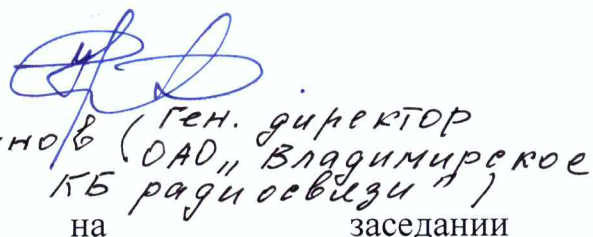 нов (Ген. директор
ОАО „Владимирское
КБ радиосвязи")
на заседании